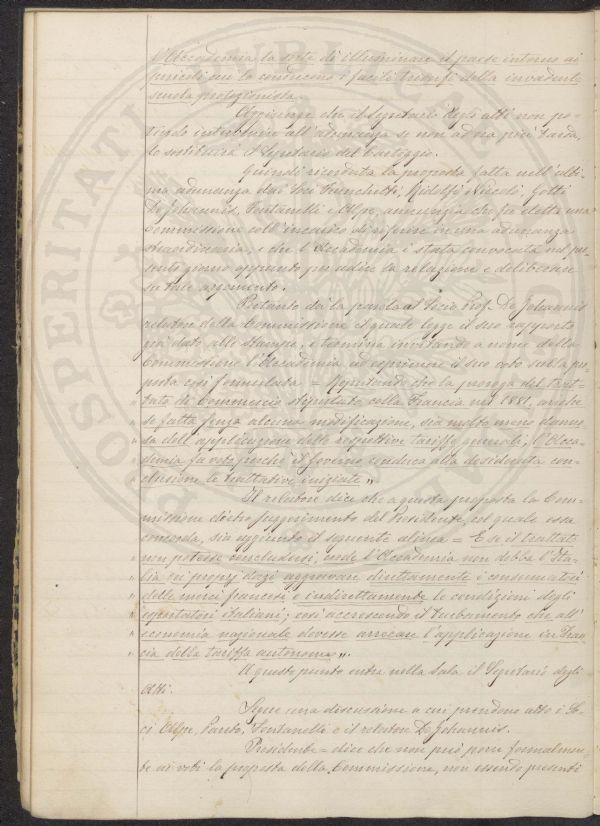 l'Accademia la sorte di illuminare il paese intorno ai
pericoli cui lo conducono i facili trionfi della invadente
scuola protezionista.
Aggiunge che il Segretario degli atti non po-
tendo intervenire all'adunanza se non ad ora più tarda,
lo sostituirà il Segretario del Carteggio.
Quindi ricordata la proposta fatta nell'ulti-
ma adunanza dai Soci Franchetti, Ridolfi Niccolò, Gotti
De Johannis, Fontanelli e Alpe, annunzia che fu eletta una
Commissione coll'incarico di riferire in una adunanza
straordinaria, e che l'Accademia è stata convocata nel pre-
sente giorno appunto per udire la relazione e deliberare
su tale argomento.
Pertanto dà la parola al Socio Prof. De Johannis
relatore della Commissione il quale legge il suo rapporto
già dato alle stampe, e termina invitando a nome della
Commissione l'Accademia ad esprimere il suo voto sulla pro-
posta così formulata = Reputando che la proroga del Trat-
tato di Commercio stipulato colla Francia nel 1881, anche
se fatta senza alcuna modificazione, sia molto meno danno-
sa dell'applicazione delle respettive tariffe generali, l'Acca-
demia fa voto perchè il Governo conduca alla desiderata con-
clusione le trattative iniziate „
Il relatore dice che a questa proposta la Com-
missione dietro suggerimento del Presidente, col quale essa
concorda, sia aggiunto il seguente alinea = E se il trattato
non potesse concludersi, crede l'Accademia non debba l'Ita-
lia coi proprj dazi aggravare direttamente i consumatori
delle merci francesi e indirettamente le condizioni degli
esportatori italiani; così accrescendo il turbamento che all'
economia nazionale dovesse arrecare l'applicazione in Fran-
cia della tariffa autonoma „.
A questo punto entra nella Sala il Segretario degli
Atti.
Segue una discussione a cui prendono atto i So-
ci Alpe, Pareto, Fontanelli e il relatore De Johannis.
Presidente = dice che non può porre formalmen-
te ai voti la proposta della Commissione, non essendo presenti
PROSPERITATI PUBLICAE